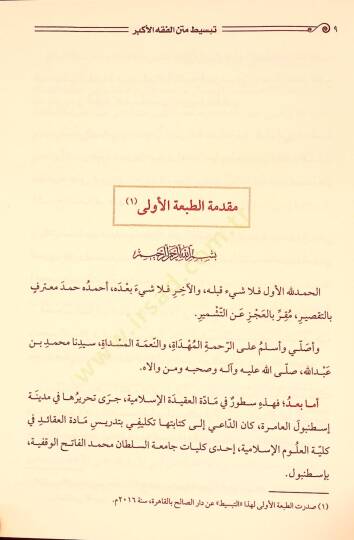 ٩ تبسيط متن الفقه الأكبر
مقدمة الطبعة الأولى (١)
بسم الله الرحمن الرحيم
الحمدلله الأول فلا شيء قبله، والآخِرِ فلا شيءَ بعْدَه، أحمدُه حمدَ معترفٍ
بالتقصيرِ، مُقِرٍّ بالعَجْزِ عَنِ التَّشْمِيرِ.
وأصَلّي وأسلمُ على الرّحمةِ المُهْدَاةِ، والنّعمَة المسْداةِ، سيّدِنا محمد بن
عبدالله، صلّى الله عليه وآله وصحبه ومن والاه.
أما بعدُ؛ فهذِهِ سطورٌ في مَادّة العقيدَة الإسلاميّة، جرَى تحريرُها في مدينَة
إسطنبولَ العامرة، كان الدّاعي إلى كتابتها تكليفي بتدريسِ مَادة العقائد في
كليّة العلُوم الإسلامية، إحدى كليات جامعة السلطان محمد الفاتح الوقفية،
بإسطنبول.
(١) صدرت الطبعة الأولى لهذا «التبسيط» عن دار الصالح بالقاهرة، سنة ٢٠١٦م.